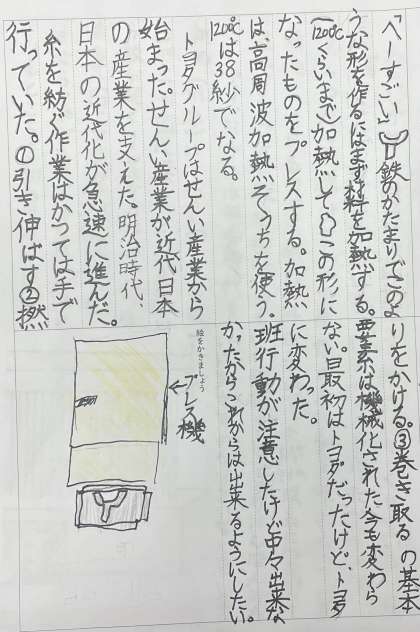 「へーすごい」鉄のかたまりでこのよ
うな形を作るにはまず材料を加熱する。
(1200℃くらいまで)加熱してこの形に
なったものをプレスする。加熱
は、高周波加熱そうちを使う。
1200℃は38紗でなる。
トヨタグループはせんい産業から
始まった。せんい産業が近代日本
の産業を支えた。明治時代、
日本の近代化が急速に進んだ。
糸を紡ぐ作業はかつては手で
行っていた。①引き伸ばす②撚
りをかける。③巻き取るの基本
要素は機械化された今も変わら
ない。最初はトヨダだったけど、トヨタ
に変わった。
班行動が注意したけど中々出来な
かったからこれからは出来るようにしたい。
絵をかきましょう
←プレス機